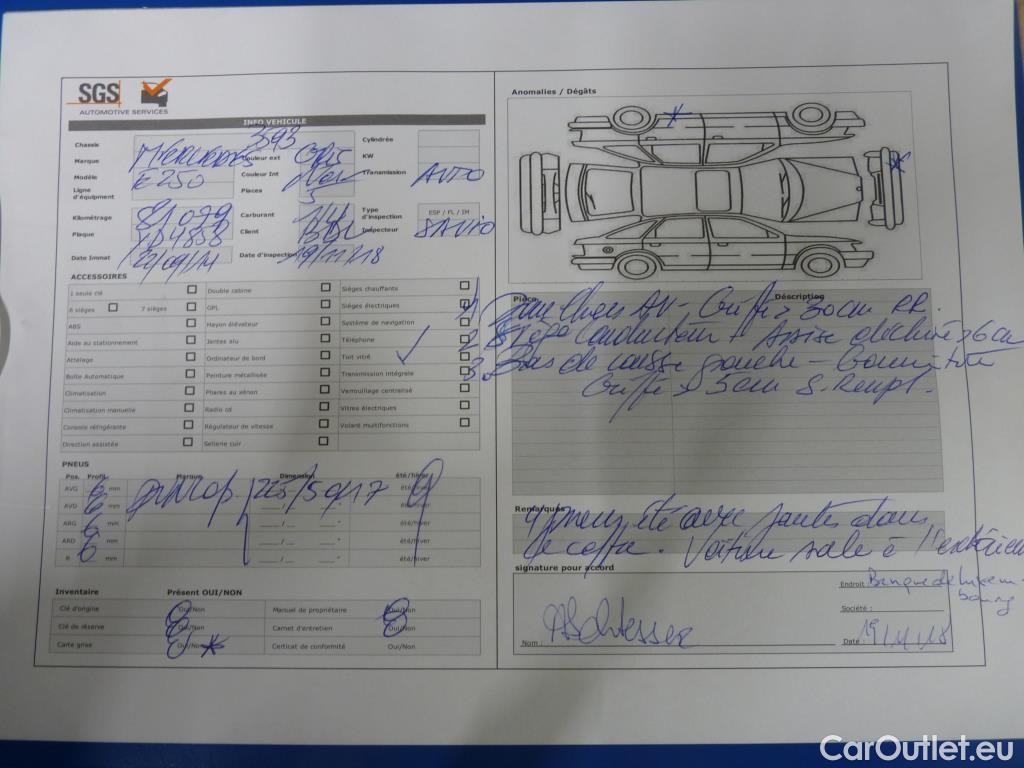 SGS
AUTOMOTIVE SERVICES
INFO VEHICULE
Chassis 593 Cylindrée
Marque MERCEDES Couleur ext GRIS KW
Modèle E250 Couleur Int Noir Transmission AUTO
Ligne d'équipement Places 5
Kilométrage 81079 Carburant Type d'inspection ESP / FL / IM
Plaque Client BDL Inspecteur
Date Immat 22/09/14 Date d'inspection 19/11/18
ACCESSOIRES
1 seule clé Double cabine Sièges chauffants
6 sièges 7 sièges GPL Sièges électriques
ABS Hayon élévateur Système de navigation
Aide au stationnement Jantes alu Téléphone
Attelage Ordinateur de bord Toit vitré
Boîte Automatique Peinture métallisée Transmission intégrale
Climatisation Phares au xénon Verrouillage centralisé
Climatisation manuelle Radio cd Vitres électriques
Console réfrigérante Régulateur de vitesse Volant multifonctions
Direction assistée Sellerie cuir
PNEUS
Pos. Profil Marque Dimension été/hiver
AVG 6 mm DUNLOP 225/50/17 été/hiver
AVD 6 mm ___/__ __" été/hiver
ARG 6 mm ___/__ __" été/hiver
ARD mm ___/__ __" été/hiver
R mm ___/__ __" été/hiver
Inventaire Présent OUI/NON
Clé d'origine Oui/Non Manuel de propriétaire Oui/Non
Clé de réserve Oui/Non Carnet d'entretien Oui/Non
Carte grise Oui/Non * Certicat de conformité Oui/Non
Anomalies / Dégâts
*
*
Pièce Description
1. Pare Chocs AV - Griffe > 30cm RR.
2. Siège conducteur + Assise déchiré > 6cm
3. Bas de caisse gauche -
Griffe > 5cm S. Rempl.
Remarques
4 pneus été avec jantes dans
le coffre. Voiture sale à l'extérieur
signature pour accord
Endroit Banque de Luxem-
bourg
Société :
Nom : Date : 19/11/18
CarOutlet.eu